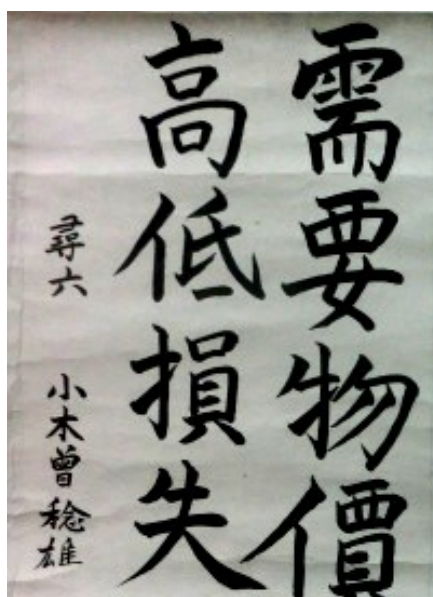 需要物價
高低損失
尋六 小木曾稔雄